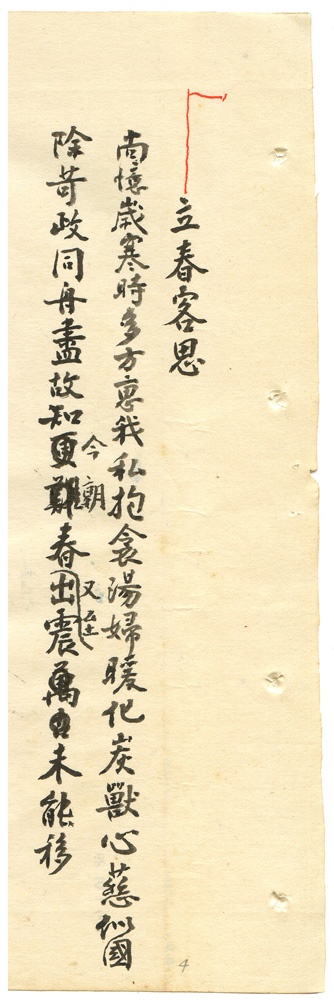 立春客思
尚憶歲寒時多方惠我私抱衾湯婦暖化炭獸心慈似國
除苛政同舟盡故知更難春出震萬未能移
今朝
又至
4